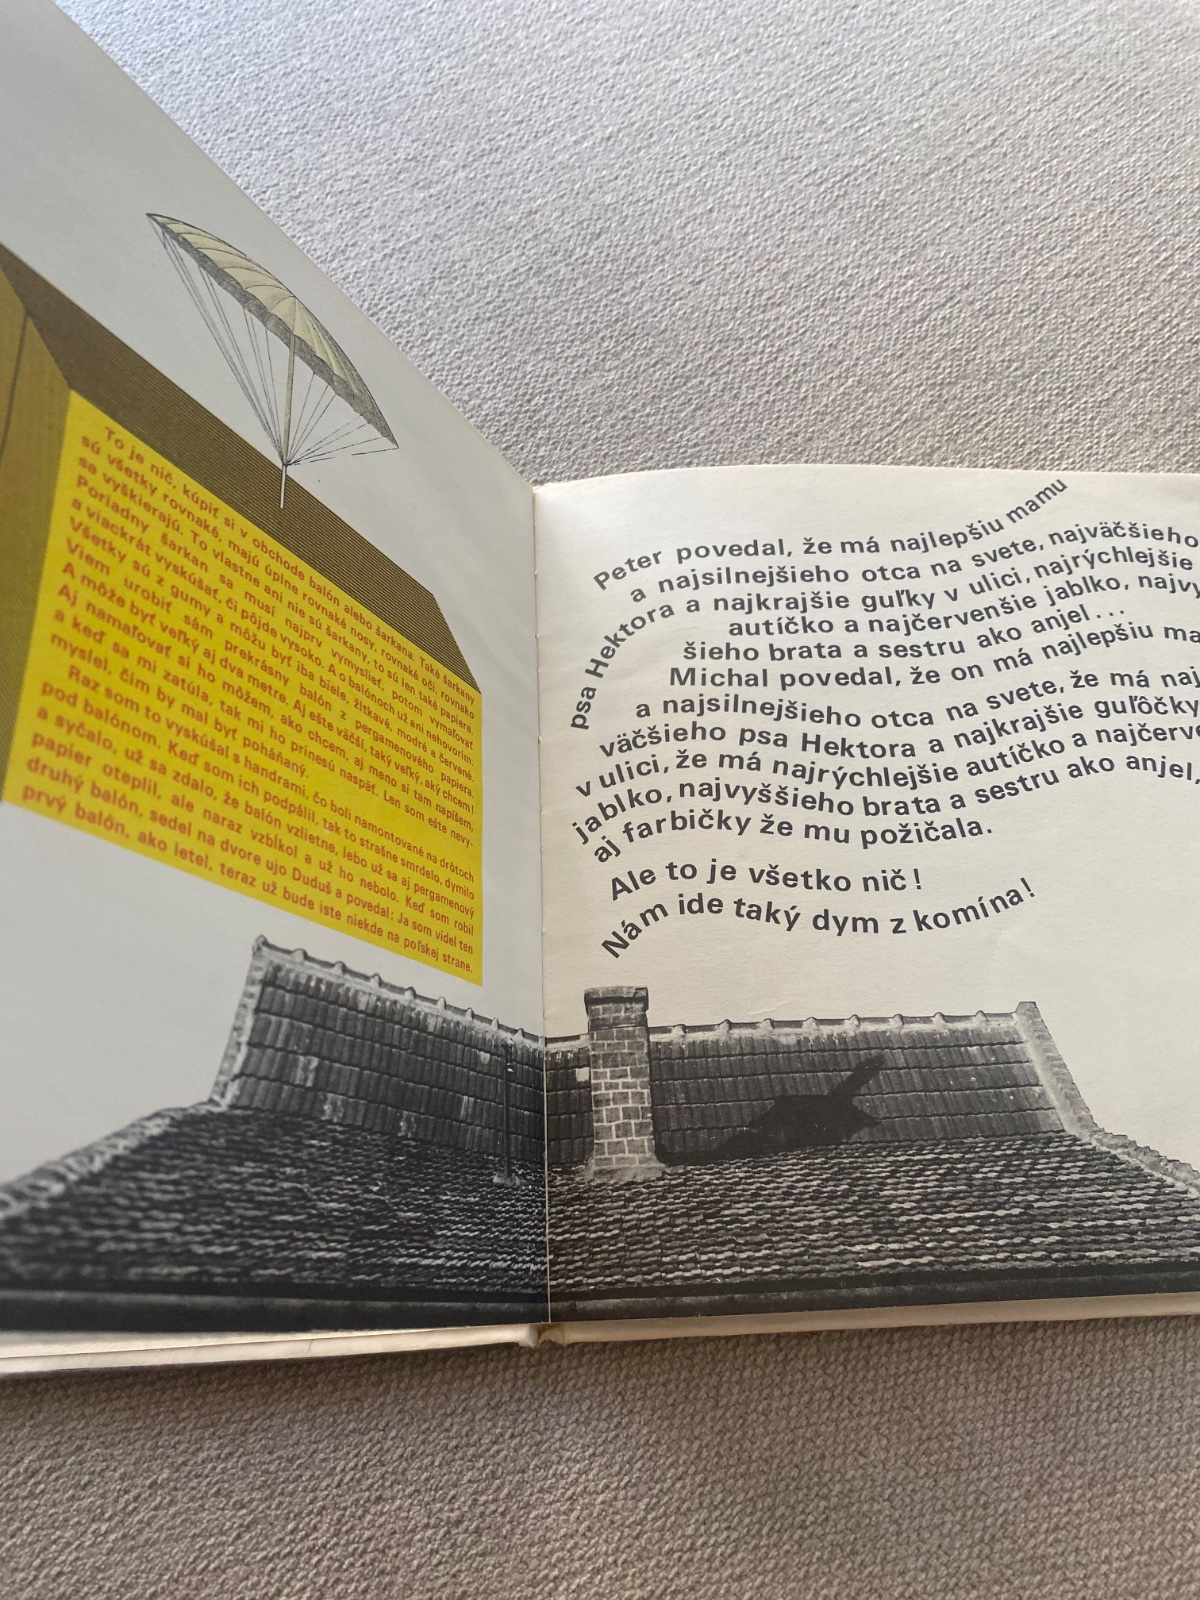 To je nič, kúpiť si v obchode balón alebo šarkana. Také šarkany
sú všetky rovnaké, majú úplne rovnaké nosy, rovnaké oči, rovnako
sa vyškierajú. To vlastne ani nie sú šarkany, to sú len také papiere.
Poriadny šarkan sa musí najprv vymyslieť, potom vymaľovať
a viackrát vyskúšať, či pôjde vysoko. A o balónoch už ani nehovorím.
Všetky sú z gumy a môžu byť iba biele, žltkavé, modré a červené.
Viem urobiť sám prekrásny balón z pergamenového papiera.
A môže byť veľký aj dva metre. Aj ešte väčší, taký veľký, aký chcem!
Aj namaľovať si ho môžem, ako chcem, aj meno si tam napíšem,
a keď sa mi zatúla, tak mi ho prinesú naspäť. Len som ešte nevy-
myslel, čím by mal byť poháňaný.
Raz som to vyskúšal s handrami, čo boli namontované na drôtoch
pod balónom. Keď som ich podpálil, tak to strašne smrdelo, dymilo
a syčalo, už sa zdalo, že balón vzlietne, lebo už sa aj pergamenový
papier oteplil, ale naraz vzbĺkol a už ho nebolo. Keď som robil
druhý balón, sedel na dvore ujo Duduš a povedal: Ja som videl ten
prvý balón, ako letel, teraz už bude iste niekde na poľskej strane.
Peter povedal, že má najlepšiu mamu
a najsilnejšieho otca na svete, najväčšieho
psa Hektora a najkrajšie guľky v ulici, najrýchlejšie
autíčko a najčervenšie jablko, najvy
šieho brata a sestru ako anjel...
Michal povedal, že on má najlepšiu ma
a najsilnejšieho otca na svete, že má naj
väčšieho psa Hektora a najkrajšie guľôčky
v ulici, že má najrýchlejšie autíčko a najčerve
jablko, najvyššieho brata a sestru ako anjel,
aj farbičky že mu požičala.
Ale to je všetko nič!
Nám ide taký dym z komína!